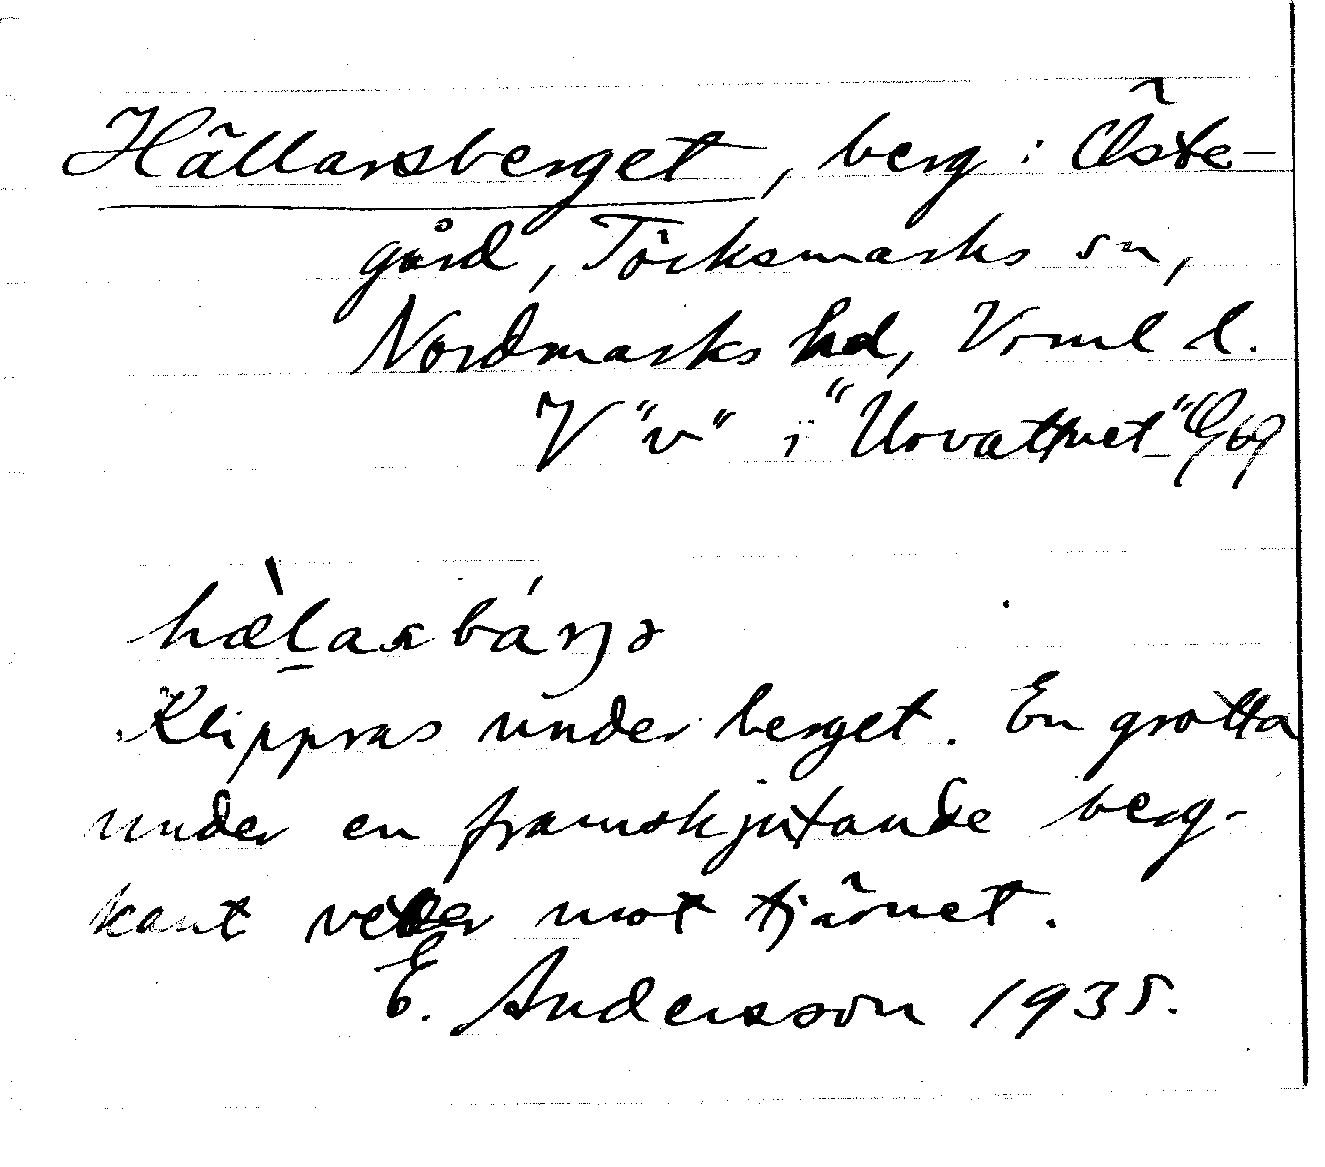 Hällarsberget, berg i Öste-
gård, Töcksmarks sn,
Nordmarks hd, Vrml l.
V "v" i "Urvattnet" Gbg
hæ̀l̠aʀbárjə
Klippras under berget. En grotta
under en framskjutande berg-
kant veter mot tjärnet.
E. Andersson 1935.